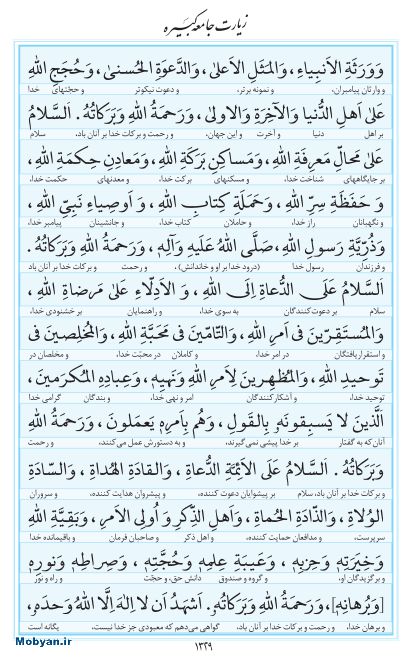 زیارت جامعه کبیره
وَوَرَثَةِ الاَنبِیاءِ، وَالمَثَلِ الاَعلیٰ، وَالدَّعوَةِ الحُسنیٰ، وَحُجَجِ اللهِ
و وارثان پیامبران، و نمونه برتر، و دعوت نیکوتر و حجتهای خدا
عَلیٰ اَهلِ الدُّنیا وَالآخِرَةِ وَالاولیٰ، وَرَحمَةُ اللهِ وَبَرَکاتُهُ. اَلسَّلامُ
بر اهل دنیا و آخرت و این جهان، و رحمت و برکات خدا بر آنان باد، سلام
عَلیٰ مَحالِّ مَعرِفَةِ اللهِ، وَمَساکِنِ بَرَکَةِ اللهِ، وَمَعادِنِ حِکمَةِ اللهِ،
بر جایگاههای شناخت خدا، و مسکنهای برکت خدا، و معدنهای حکمت خدا،
وَ حَفَظَةِ سِرِّ اللهِ، وَحَمَلَةِ کِتابِ اللهِ، وَ اَوصِیاءِ نَبِیِّ اللهِ،
و نگهبانان راز خدا، و حاملان کتاب خدا، و جانشینان پیامبر خدا،
وَذُرِّیَّةِ رَسولِ اللهِ، صَلَّی اللهُ عَلَیهِ وَآلِهِ، وَرَحمَةُ اللهِ وَبَرَکاتُهُ.
و فرزندان رسول خدا (درود خدا بر او و خاندانش)، و رحمت و برکات خدا بر آنان باد
اَلسَّلامُ عَلَی الدُّعاةِ اِلَی اللهِ، وَ الاَدِلّاءِ عَلیٰ مَرضاةِ اللهِ،
سلام بر دعوت‌کنندگان به سوی خدا، و راهنمایان بر خشنودی خدا،
وَالمُستَقِرّینَ فی اَمرِ اللهِ، وَالتّامّینَ فی مَحَبَّةِ اللهِ، وَالمُخلِصینَ فی
و استقراریافتگان در امر خدا، و کاملان در محبّت خدا، و مخلصان در
تَوحیدِ اللهِ، وَالمُظهِرینَ لِاَمرِ اللهِ وَنَهیِهِ، وَعِبادِهِ المُکرَمینَ،
توحید خدا، و آشکارکنندگان امر و نهی خدا، و بندگان گرامی خدا
اَلَّذینَ لا یَسبِقونَهُ بِالقَولِ، وَهُم بِاَمرِهِ یَعمَلونَ، وَرَحمَةُ اللهِ
آنان که به گفتار بر خدا پیشی نمی‌گیرند، و به دستورش عمل می‌کنند، و رحمت
وَبَرَکاتُهُ. اَلسَّلامُ عَلَی الاَئِمَّةِ الدُّعاةِ، وَالقادَةِ الهُداةِ، وَالسّادَةِ
و برکات خدا بر آنان باد، سلام بر پیشوایان دعوت کننده، و پیشروان هدایت کننده، و سروران
الوُلاةِ، وَالذّادَةِ الحُماةِ، وَاَهلِ الذِّکرِ وَ اُولِی الاَمرِ، وَبَقِیَّةِ اللهِ
سرپرست، و مدافعان حمایت کننده، و اهل ذکر و صاحبان فرمان و باقیمانده خدا
وَخِیَرَتِهِ وَحِزبِهِ، وَعَیبَةِ عِلمِهِ وَحُجَّتِهِ، وَصِراطِهِ وَنورِهِ
و برگزیدگان او، و گروه و صندوق دانش حق، و حجّت و راه و نور
[وَبُرهانِهِ]، وَرَحمَةُ اللهِ وَبَرَکاتُهُ. اَشهَدُ اَن لا اِلٰهَ اِلَّا اللهُ وَحدَهُ،
و برهان خدا، و رحمت و برکات خدا بر آنان باد، گواهی می‌دهم که معبودی جز خدا نیست، یگانه است
۱۳۳۹
Mobyan.ir